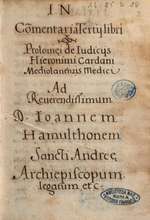 IN
Com̃entaria Tertij libri
Ptolomei de Iudicijs
Hieronimi Cardani
Mediolanensis Medici
Ad
Reverendissimum
D. Ioannem
Hamulthonem
Sancti Andreę
Archiepiscopum
legatum etc